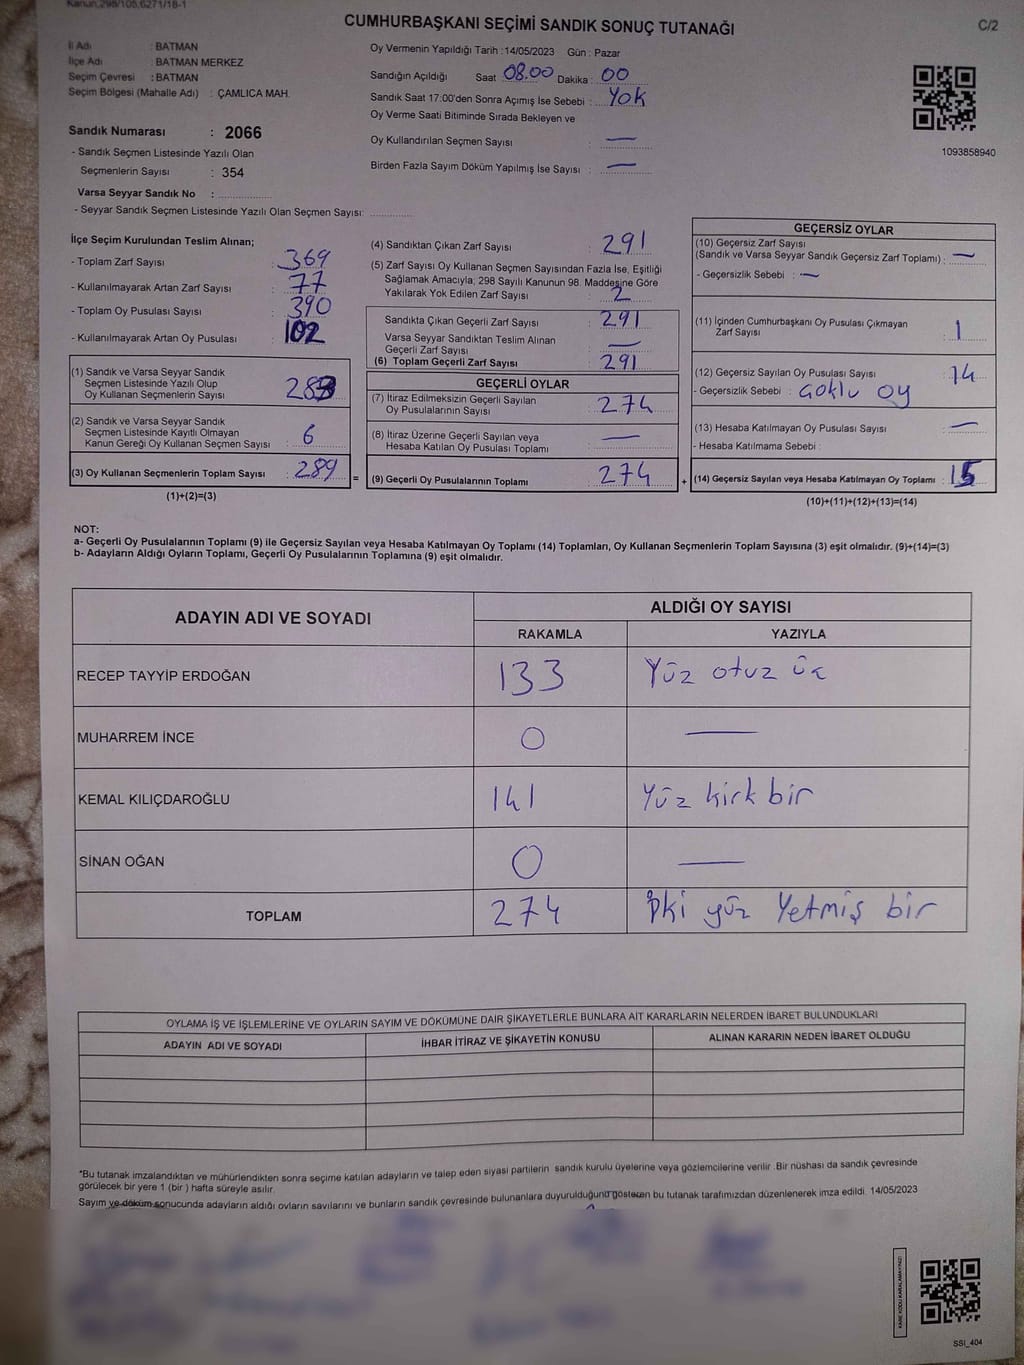 Kanun,298/105,6271/18-1
CUMHURBAŞKANI SEÇİMİ SANDIK SONUÇ TUTANAĞI
C/2
İl Adı : BATMAN
İlçe Adı : BATMAN MERKEZ
Seçim Çevresi : BATMAN
Seçim Bölgesi (Mahalle Adı) : ÇAMLICA MAH.
Sandık Numarası : 2066
- Sandık Seçmen Listesinde Yazılı Olan
Seçmenlerin Sayısı : 354
Varsa Seyyar Sandık No :
- Seyyar Sandık Seçmen Listesinde Yazılı Olan Seçmen Sayısı:
Oy Vermenin Yapıldığı Tarih :14/05/2023 Gün : Pazar
Sandığın Açıldığı Saat 08.00 Dakika : 00
Sandık Saat 17:00'den Sonra Açımış İse Sebebi : Yok
Oy Verme Saati Bitiminde Sırada Bekleyen ve
Oy Kullandırılan Seçmen Sayısı : —
Birden Fazla Sayım Döküm Yapılmış İse Sayısı : —
1093858940
İlçe Seçim Kurulundan Teslim Alınan;
- Toplam Zarf Sayısı : 369
- Kullanılmayarak Artan Zarf Sayısı : 77
- Toplam Oy Pusulası Sayısı : 390
- Kullanılmayarak Artan Oy Pusulası : 102
(1) Sandık ve Varsa Seyyar Sandık
Seçmen Listesinde Yazılı Olup
Oy Kullanan Seçmenlerin Sayısı : 283
(2) Sandık ve Varsa Seyyar Sandık
Seçmen Listesinde Kayıtlı Olmayan
Kanun Gereği Oy Kullanan Seçmen Sayısı : 6
(3) Oy Kullanan Seçmenlerin Toplam Sayısı : 289
(1)+(2)=(3)
=
(4) Sandıktan Çıkan Zarf Sayısı : 291
(5) Zarf Sayısı Oy Kullanan Seçmen Sayısından Fazla İse, Eşitliği
Sağlamak Amacıyla, 298 Sayılı Kanunun 98. Maddesine Göre
Yakılarak Yok Edilen Zarf Sayısı : 2
Sandıkta Çıkan Geçerli Zarf Sayısı : 291
Varsa Seyyar Sandıktan Teslim Alınan
Geçerli Zarf Sayısı : —
(6) Toplam Geçerli Zarf Sayısı : 291
GEÇERLİ OYLAR
(7) İtiraz Edilmeksizin Geçerli Sayılan
Oy Pusulalarının Sayısı : 274
(8) İtiraz Üzerine Geçerli Sayılan veya
Hesaba Katılan Oy Pusulası Toplamı : —
(9) Geçerli Oy Pusulalarının Toplamı : 274
+
GEÇERSİZ OYLAR
(10) Geçersiz Zarf Sayısı
(Sandık ve Varsa Seyyar Sandık Geçersiz Zarf Toplamı) : —
- Geçersizlik Sebebi : —
(11) İçinden Cumhurbaşkanı Oy Pusulası Çıkmayan
Zarf Sayısı : 1
(12) Geçersiz Sayılan Oy Pusulası Sayısı : 14
- Geçersizlik Sebebi : çoklu oy
(13) Hesaba Katılmayan Oy Pusulası Sayısı : —
- Hesaba Katılmama Sebebi :
(14) Geçersiz Sayılan veya Hesaba Katılmayan Oy Toplamı : 15
(10)+(11)+(12)+(13)=(14)
NOT:
a- Geçerli Oy Pusulalarının Toplamı (9) ile Geçersiz Sayılan veya Hesaba Katılmayan Oy Toplamı (14) Toplamları, Oy Kullanan Seçmenlerin Toplam Sayısına (3) eşit olmalıdır. (9)+(14)=(3)
b- Adayların Aldığı Oyların Toplamı, Geçerli Oy Pusulalarının Toplamına (9) eşit olmalıdır.
ADAYIN ADI VE SOYADI
ALDIĞI OY SAYISI
RAKAMLA YAZIYLA
RECEP TAYYİP ERDOĞAN 133 Yüz otuz üç
MUHARREM İNCE 0 —
KEMAL KILIÇDAROĞLU 141 Yüz kirk bir
SİNAN OĞAN 0 —
TOPLAM 274 İki yüz Yetmiş bir
OYLAMA İŞ VE İŞLEMLERİNE VE OYLARIN SAYIM VE DÖKÜMÜNE DAİR ŞİKAYETLERLE BUNLARA AİT KARARLARIN NELERDEN İBARET BULUNDUKLARI
ADAYIN ADI VE SOYADI İHBAR İTİRAZ VE ŞİKAYETİN KONUSU ALINAN KARARIN NEDEN İBARET OLDUĞU
*Bu tutanak imzalandıktan ve mühürlendikten sonra seçime katılan adayların ve talep eden siyasi partilerin sandık kurulu üyelerine veya gözlemcilerine verilir .Bir nüshası da sandık çevresinde
görülecek bir yere 1 (bir ) hafta süreyle asılır.
Sayım ve döküm sonucunda adayların aldığı oyların sayılarını ve bunların sandık çevresinde bulunanlara duyurulduğunu gösteren bu tutanak tarafımızdan düzenlenerek imza edildi. 14/05/2023
KARE KODU KARALAMAYINIZ!
SSI_404